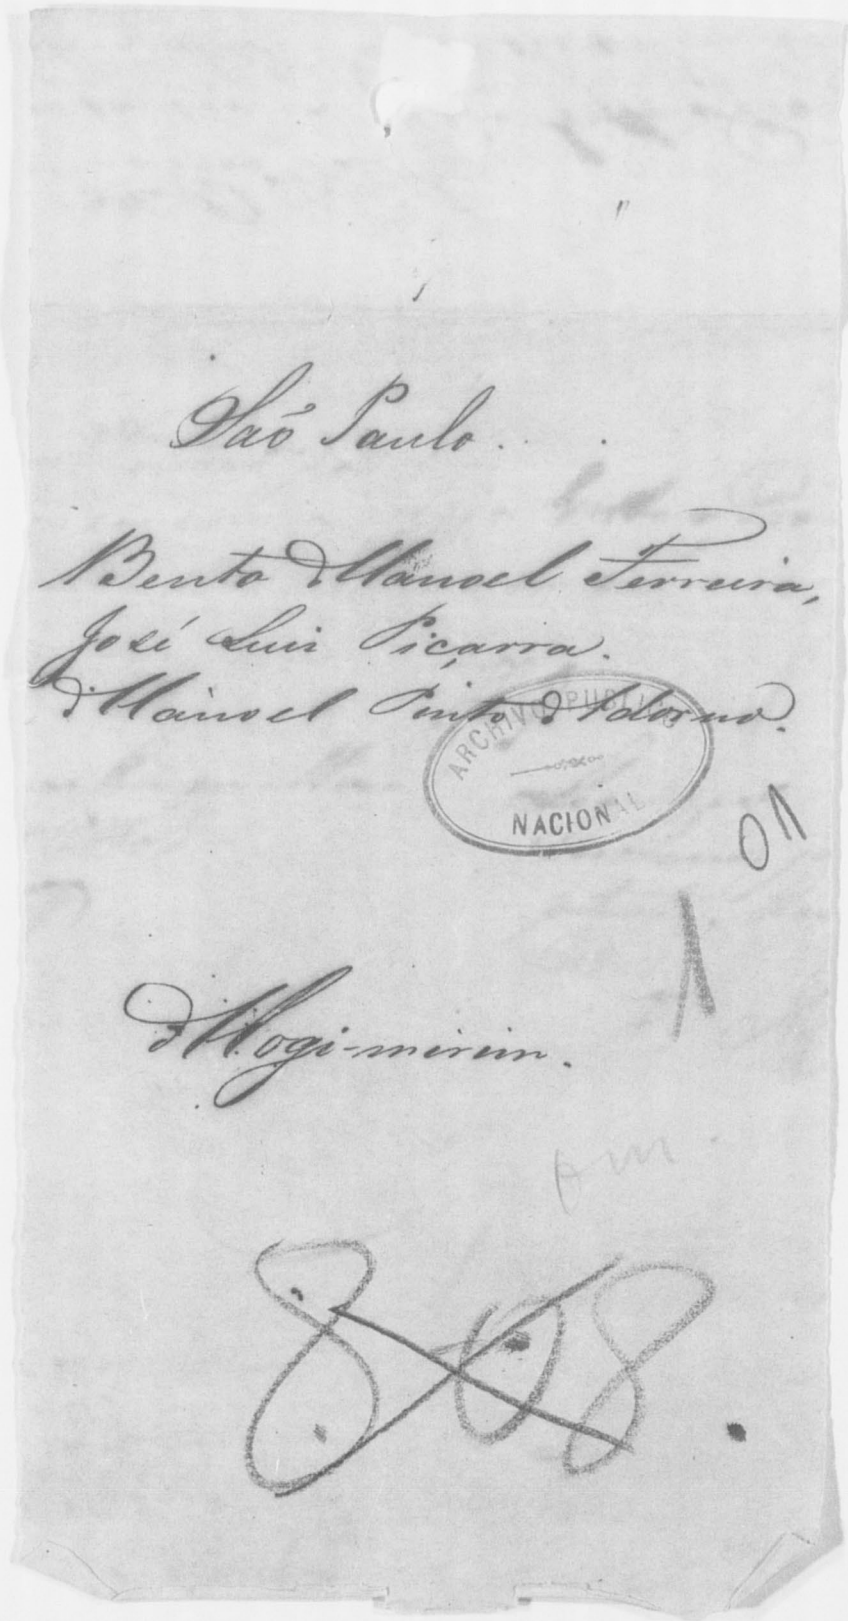 São Paulo.
Bento Manoel Ferreira,
José Luis Piçarra.
Manoel Pinto Adorno.
ARCHIVO PUBLICO
NACIONAL
01
1
Mogi-mirim.
808